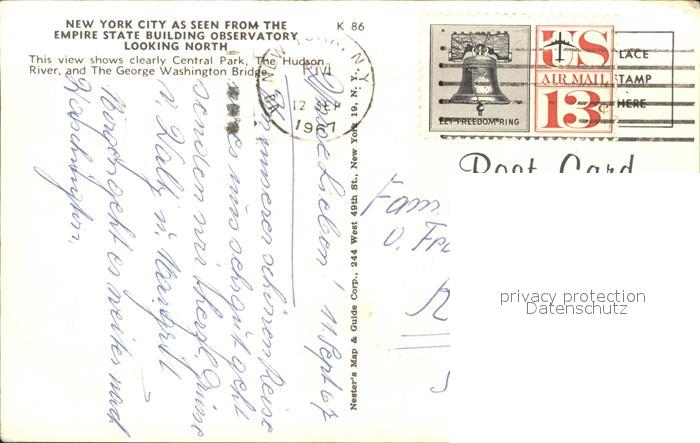 NEW YORK CITY AS SEEN FROM THE
EMPIRE STATE BUILDING OBSERVATORY
LOOKING NORTH
This view shows clearly Central Park, The Hudson
River, and The George Washington Bridge.
K 86
N.Y.
12 SEP
1967
LET FREEDOM RING
US
AIR MAIL
13c
PLACE
STAMP
HERE
Post Card
Nester's Map & Guide Corp., 244 West 49th St., New York 19, N. Y.
Lieben! 11. Sept 67
unserer schönen Reise
es uns sehr gut geht
senden wir herzl. Grüße
Morgen geht es weiter nach
Washington.
Fam.
u. Fr
privacy protection
Datenschutz